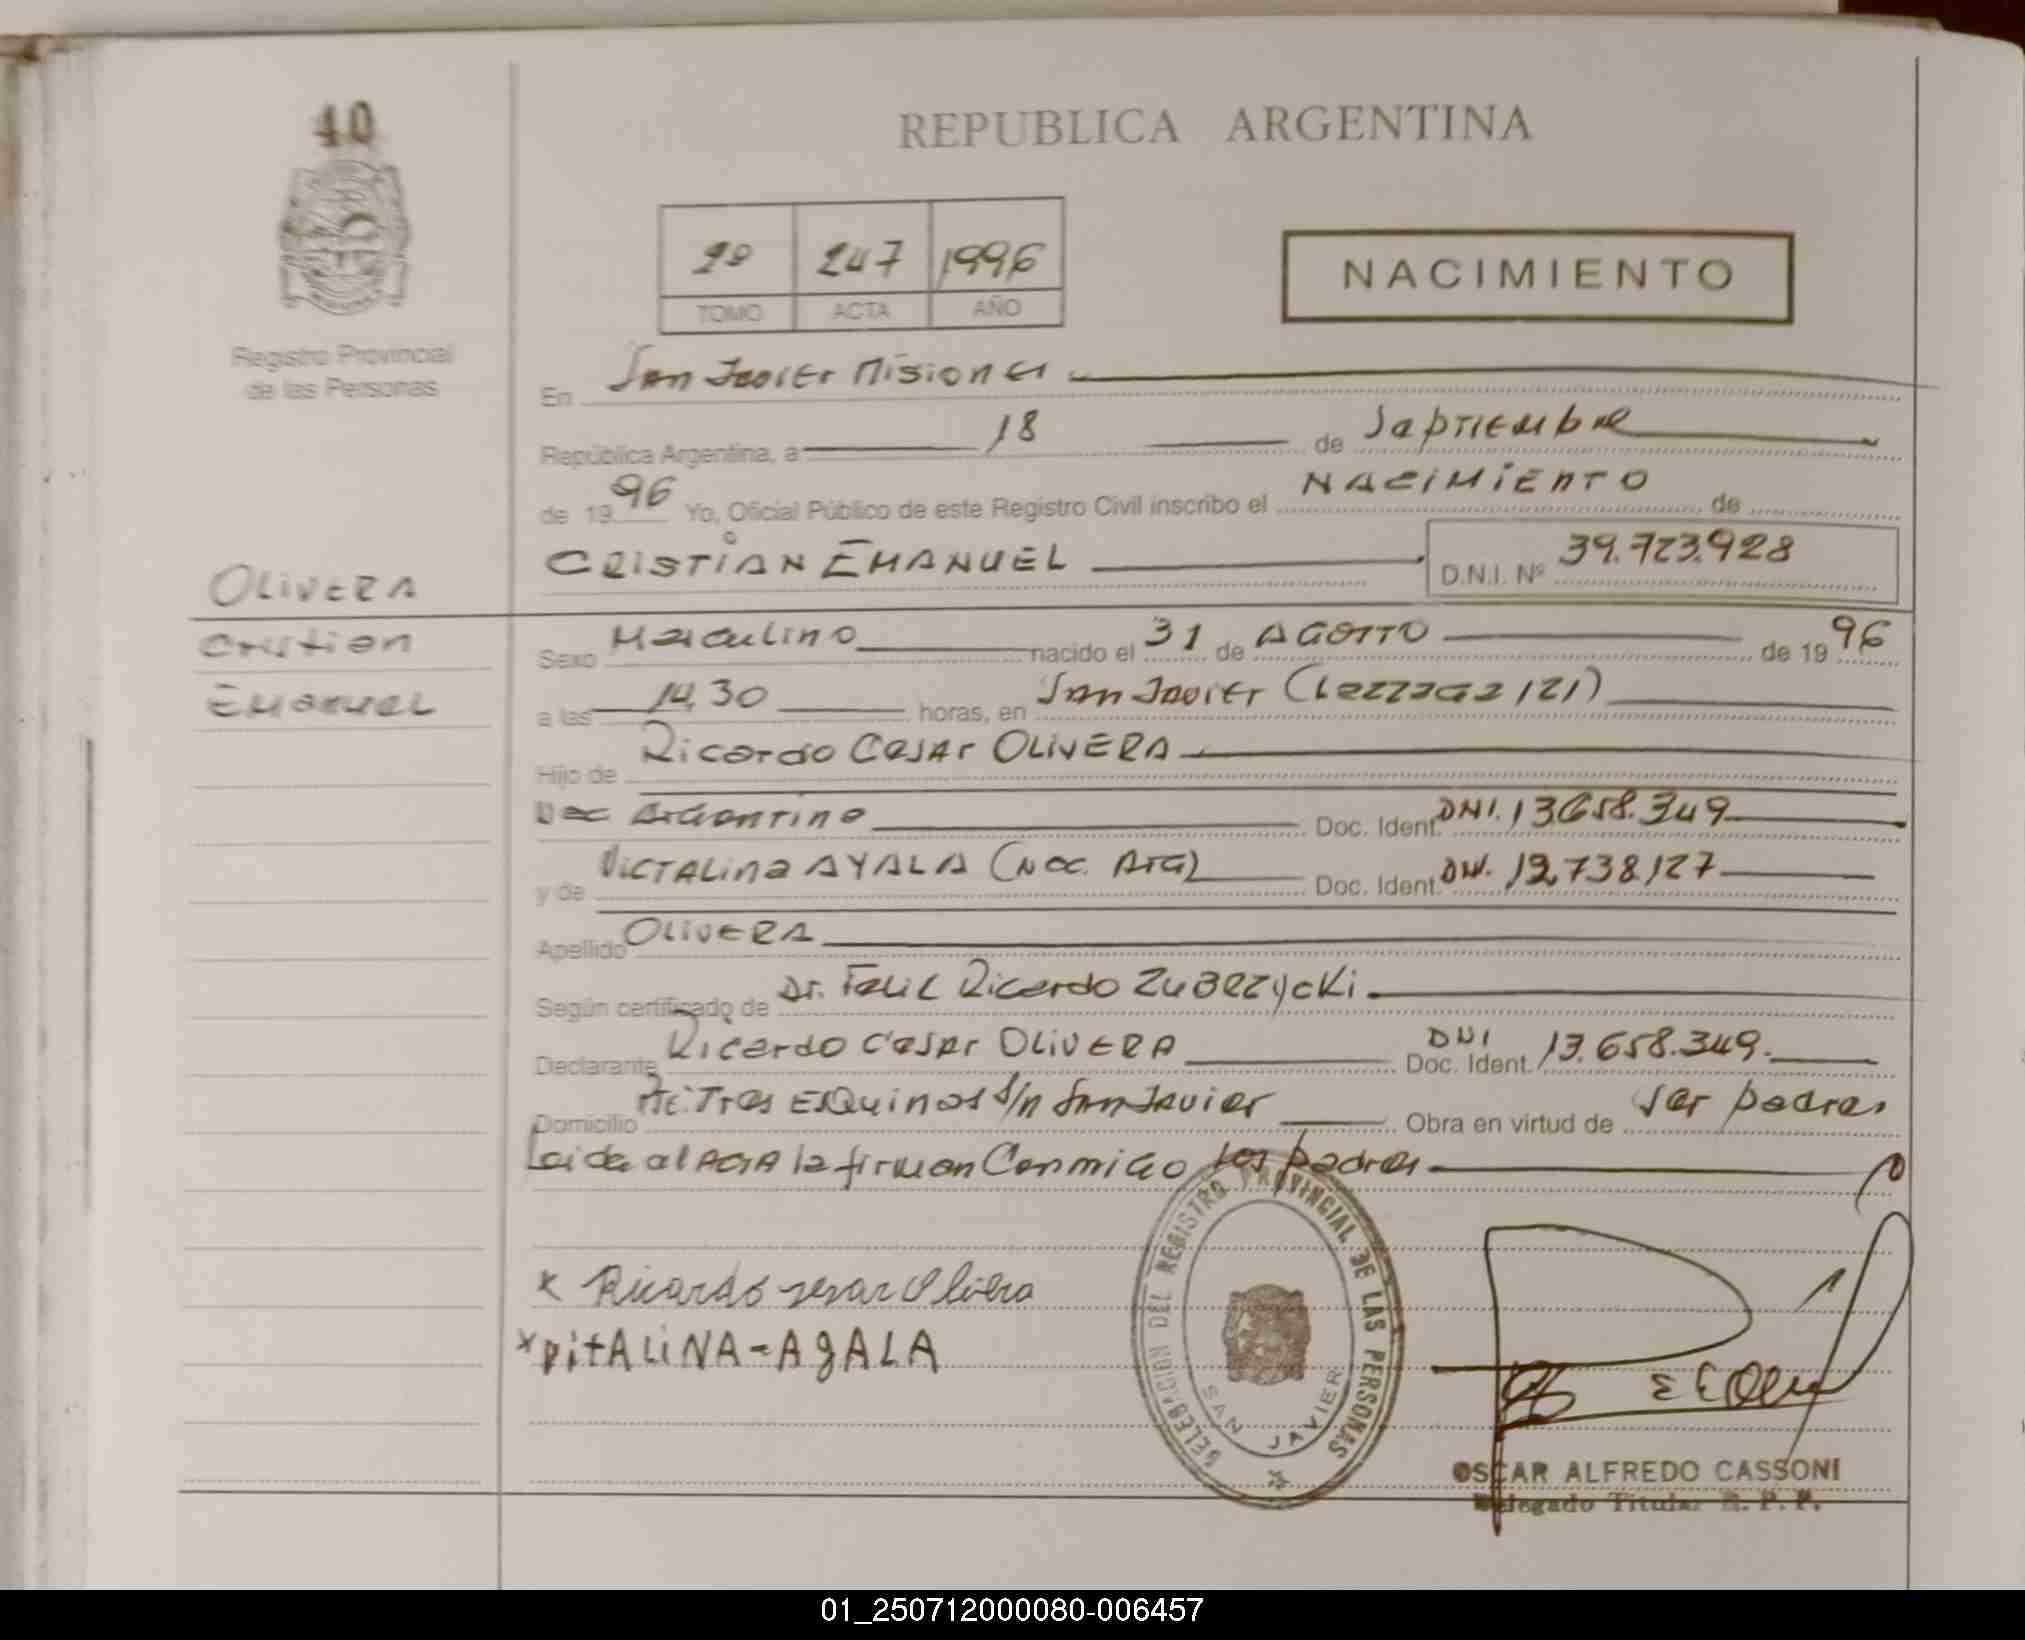 40
REPUBLICA ARGENTINA
2º 247 1996
TOMO ACTA AÑO
NACIMIENTO
Registro Provincial
de las Personas
En San Javier Misiones
República Argentina, a 18 de Septiembre
de 1996 Yo, Oficial Público de este Registro Civil inscribo el NACIMIENTO de
CRISTIAN EMANUEL D.N.I. Nº 39.723.928
OLIVERA
Cristian
Emanuel
Sexo Masculino nacido el 31 de AGOSTO de 1996
a las 14,30 horas, en San Javier
Hijo de Ricardo Cesar OLIVERA
Nac Argentino Doc. Ident. DNI. 13.658.349
y de VICTALina AYALA (Nac. Arg) Doc. Ident. DNI. 12.738.127
Apellido OLIVERA
Según certificado de Dr. Felix Ricardo ZUBRZYCKI
Declarante Ricardo Cesar OLIVERA DNI Doc. Ident. 13.658.349.
Domicilio Tres Esquinas S/n San Javier Obra en virtud de ser padres
Leida el ACTA la firman Conmigo los padres
x Ricardo sesar Olivera
x pitALiNA=AgALA
DELEGACION DEL REGISTRO PROVINCIAL DE LAS PERSONAS
SAN JAVIER
OSCAR ALFREDO CASSONI
Delegado Titular R. P. P.
01_250712000080-006457